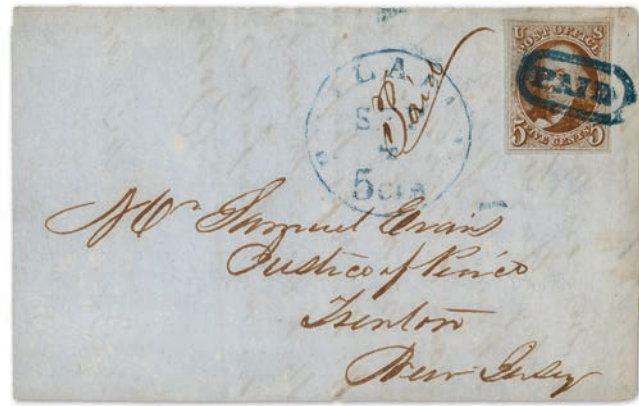 U S
POST OFFICE
PAID
5 FIVE CENTS 5
PHILA
S
4
5 cts
Paid
Mr Samuel Evans
Justice of Peace
Trenton
New Jersey